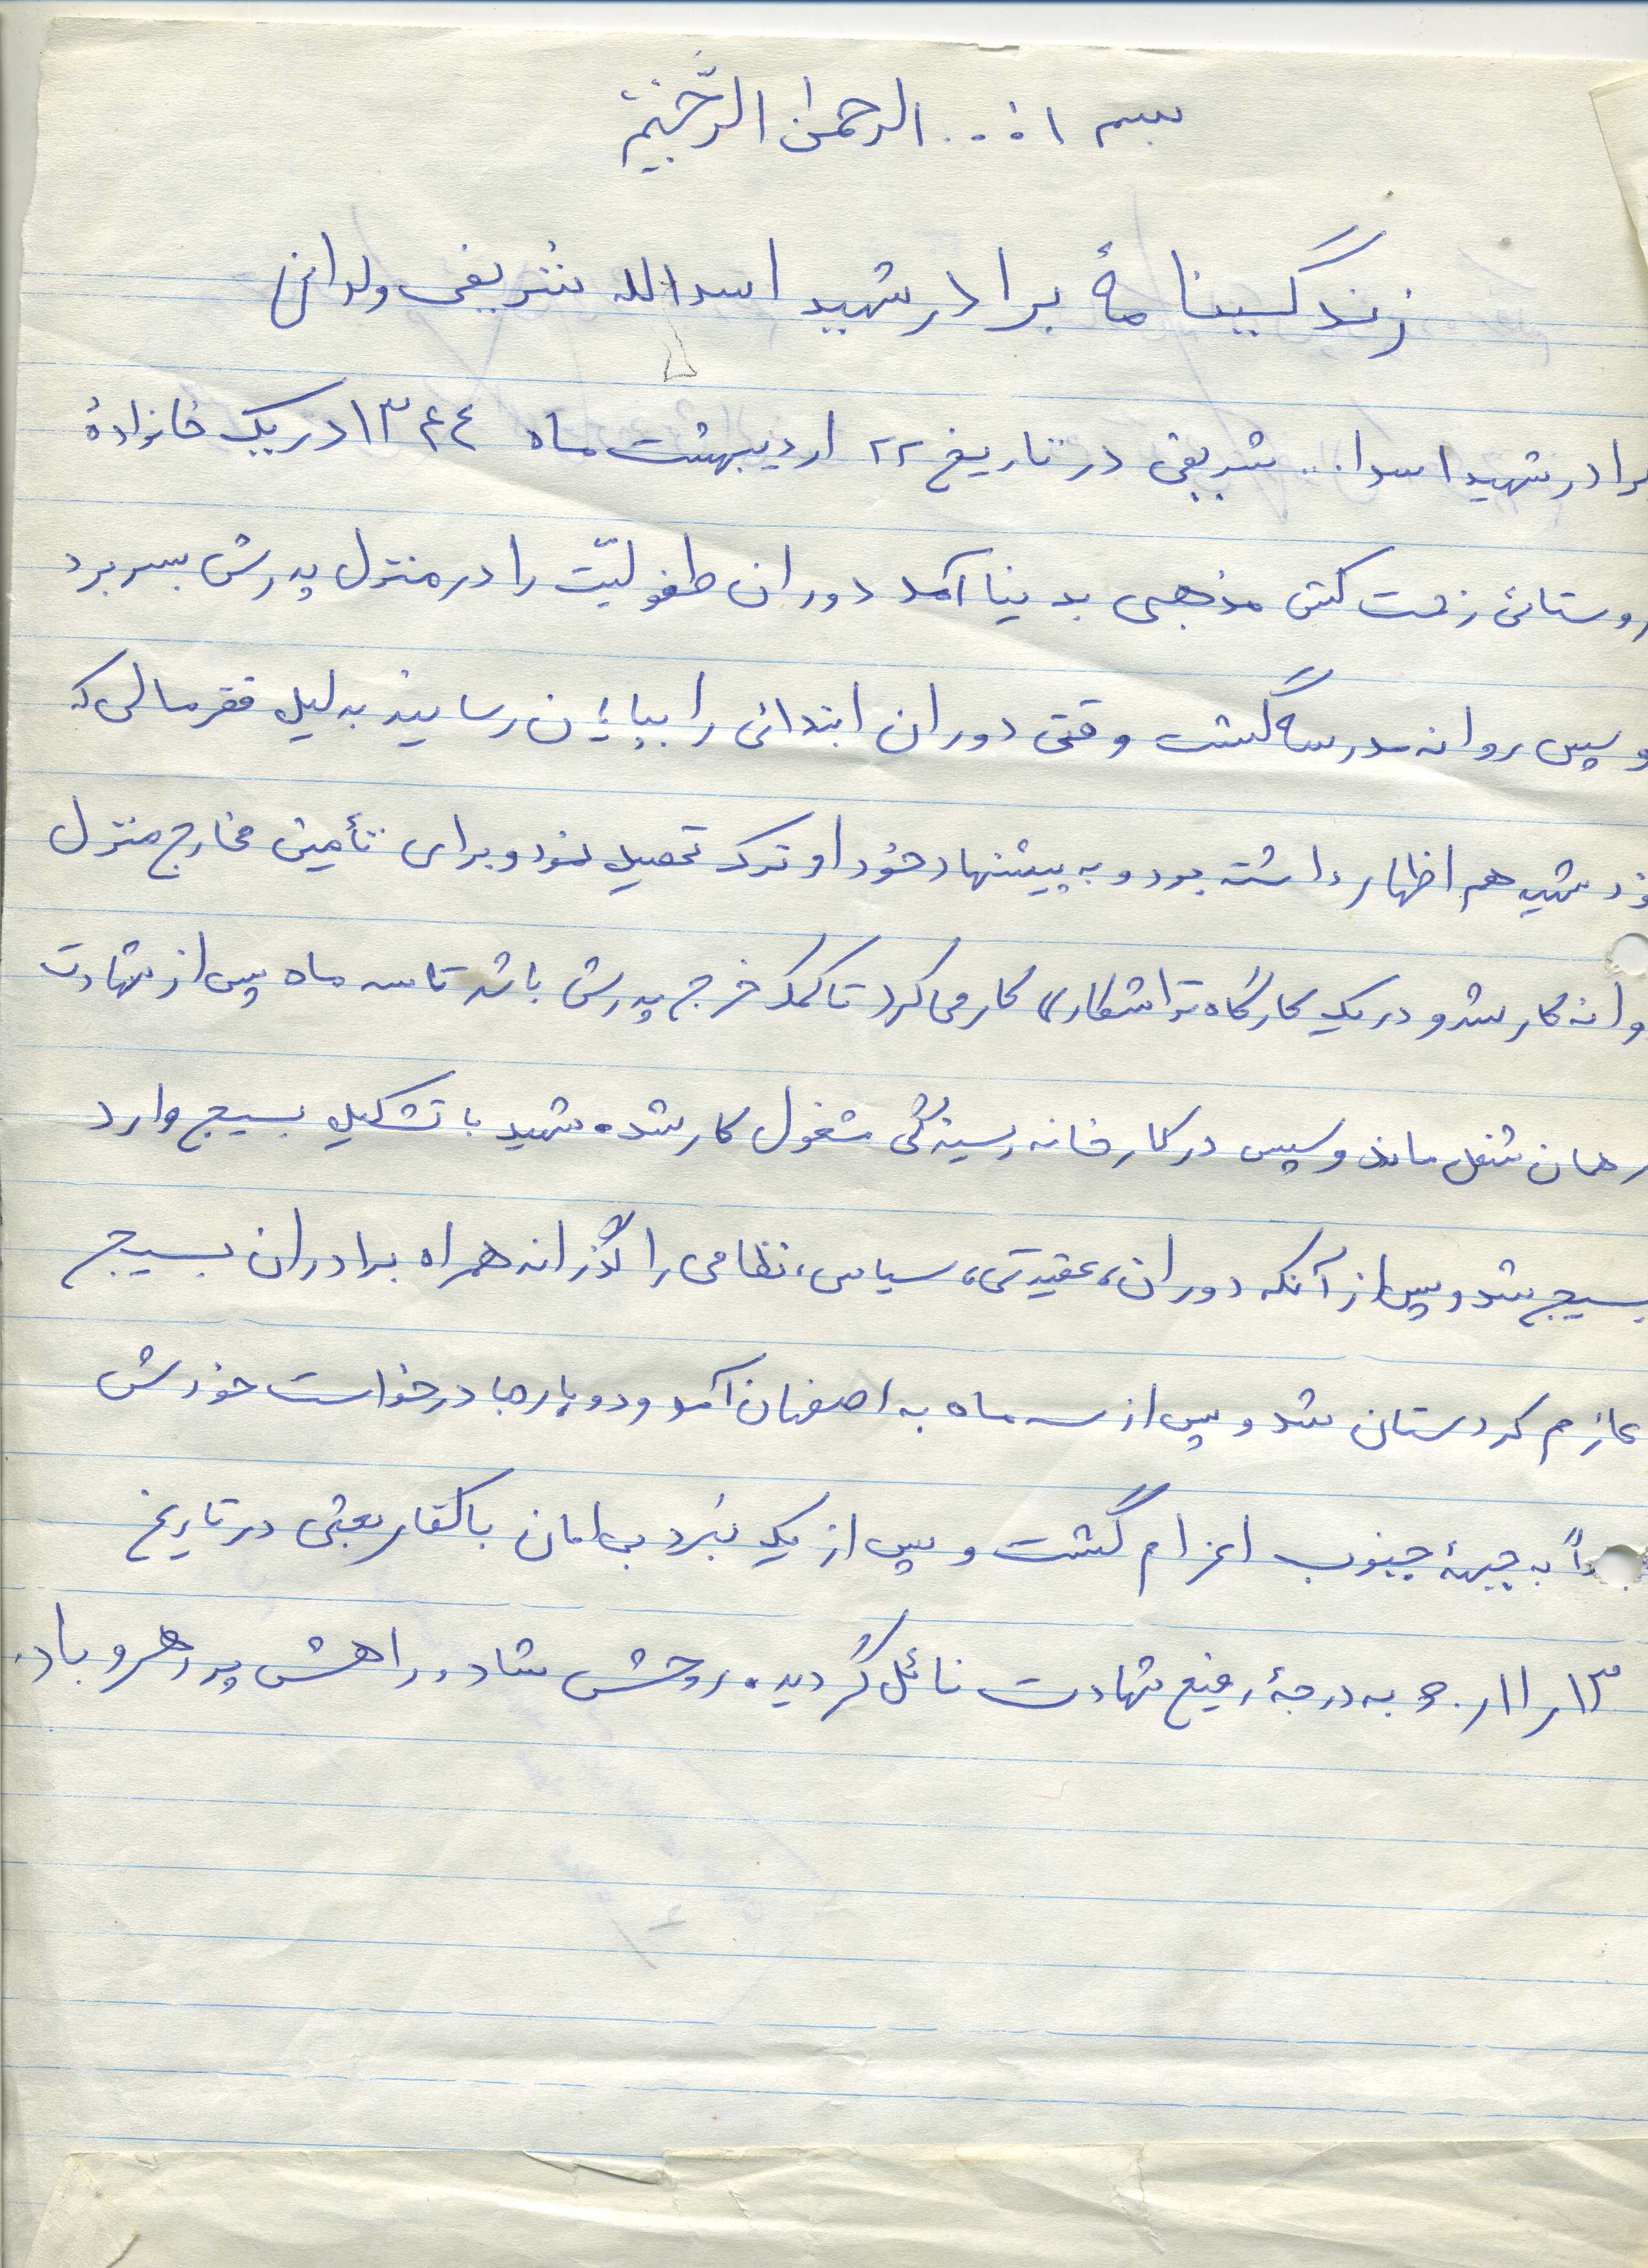 بسم ا... الرحمن الرّحیم
زندگینامهٔ برادر شهید اسدالله شریفی ولدانی
برادر شهید اسدا... شریفی در تاریخ ۲۲ اردیبهشت ماه ۱۳۴۴ در یک خانوادهٔ
روستائی زحمت کش مذهبی بدینا آمد دوران طفولیّت را در منزل پدرش بسر برد
و سپس روانه مدرسه گشت وقتی دوران ابتدائی را بپایان رسانید بدلیل فقر مالی که
خود شهید هم اظهار داشته بود و به پیشنهاد خود او ترک تحصیل نمود و برای تأمین مخارج منزل
روانه کار شد و در یک کارگاه تراشکاری کار می کرد تا کمک خرج پدرش باشد تا سه ماه پس از شهادت
در همان شغل ماند و سپس در کارخانه ریسندگی مشغول کار شد. شهید با تشکیل بسیج وارد
بسیج شد و پس از آنکه دوران، عقیدتی، سیاسی، نظامی را گذراند همراه برادران بسیج
عازم کردستان شد و پس از سه ماه به اصفهان آمد و دوباره با درخواست خودش
به جبههٔ جنوب اعزام گشت و پس از یک نبرد بی امان با کفار بعثی در تاریخ
۱۳ر۱۱ر۶۰ به درجهٔ رفیع شهادت نائل گردید. روحش شاد و راهش پر رهرو باد.